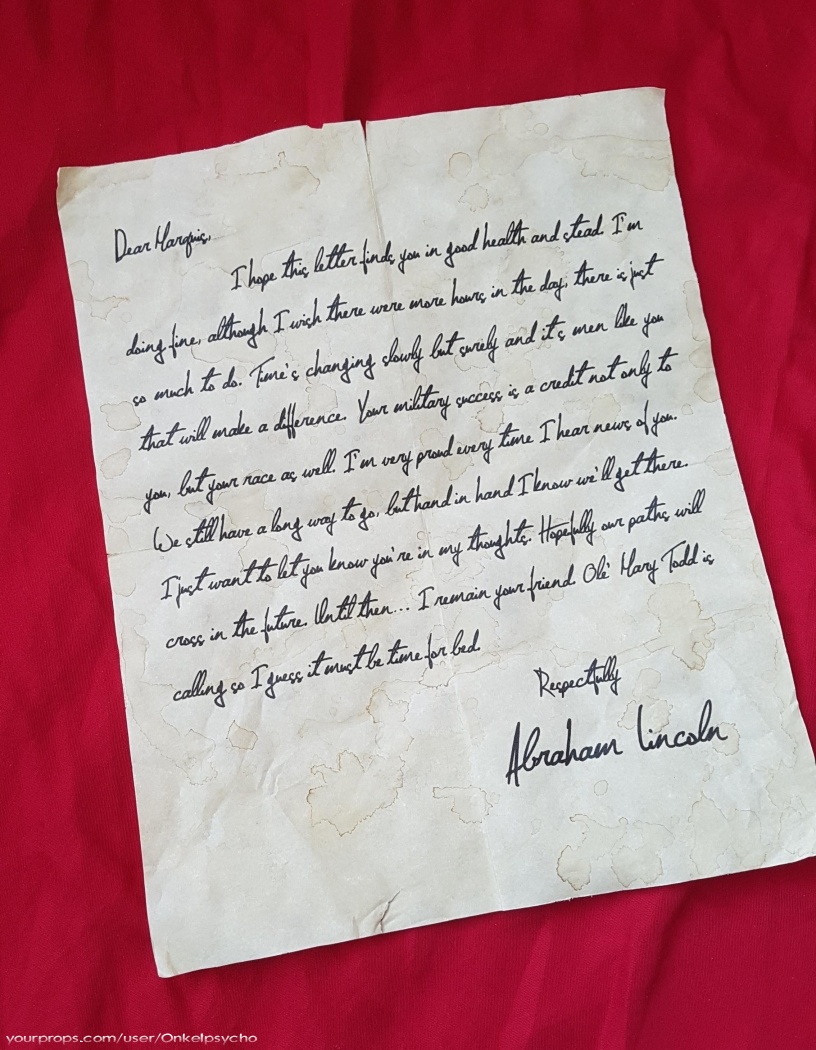 Dear Marquis,
I hope this letter finds you in good health and stead. I'm
doing fine, although I wish there were more hours in the day, there is just
so much to do. Time's changing slowly but surely and it's men like you
that will make a difference. Your military success is a credit not only to
you, but your race as well. I'm very proud every time I hear news of you.
We still have a long way to go, but hand in hand I know we'll get there.
I just want to let you know you're in my thoughts. Hopefully our paths will
cross in the future. Until then... I remain your friend. Ole' Mary Todd is
calling so I guess it must be time for bed.
Respectfully
Abraham Lincoln
yourprops.com/user/Onkelpsycho